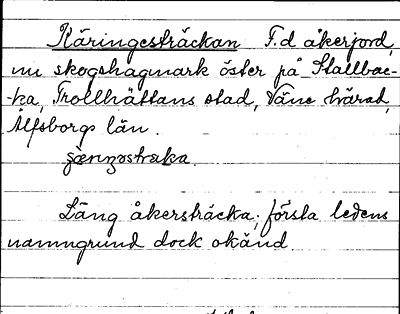 Käringesträckan F.d åkerjord,
nu skogshagmark öster på Stallbac-
-ka, Trollhättans stad, Väne härad,
Älfsborgs län.
Lång åkersträcka, första ledens
namngrund dock okänd